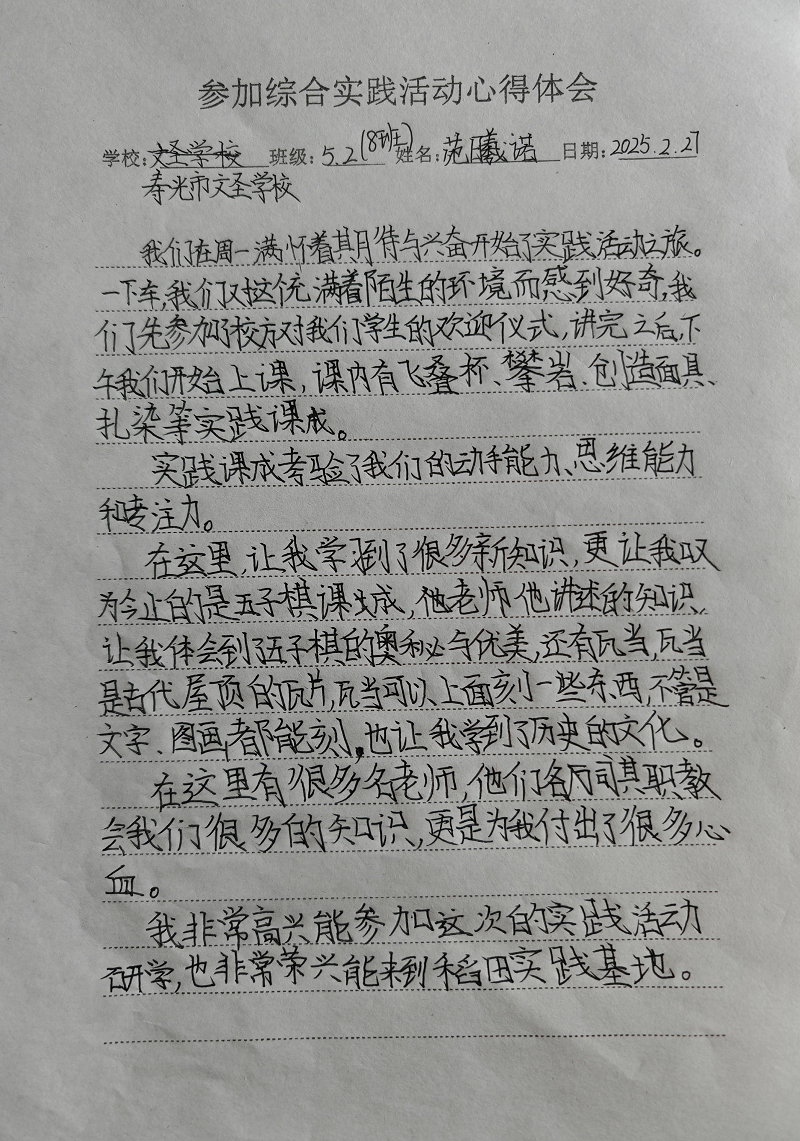 参加综合实践活动心得体会
学校:文圣学校 班级:5.2(8班) 姓名:范曦诺 日期:2025.2.27
寿光市文圣学校
我们在周一满怀着期待与兴奋开始了实践活动之旅。
一下车,我们对这个充满着陌生的环境而感到好奇,我
们先参加了校方对我们学生的欢迎仪式,讲完之后,下
午我们开始上课,课内有飞叠杯、攀岩、创造面具、
扎染等实践课成。
实践课成考验了我们的动手能力、思维能力
和专注力。
在这里,让我学到了很多新知识,更让我叹
为今止的是五子棋课成,他老师他讲述的知识,
让我体会到了五子棋的奥秘与优美,还有瓦当,瓦当
是古代屋顶的瓦片,瓦当可以上面刻一些东西,不管是
文字、图画,都能刻,也让我学到了历史的文化。
在这里有很多名老师,他们各司其职教
会我们很多的知识,更是为我付出了很多心
血。
我非常高兴能参加这次的实践活动
研学,也非常荣兴能来到稻田实践基地。